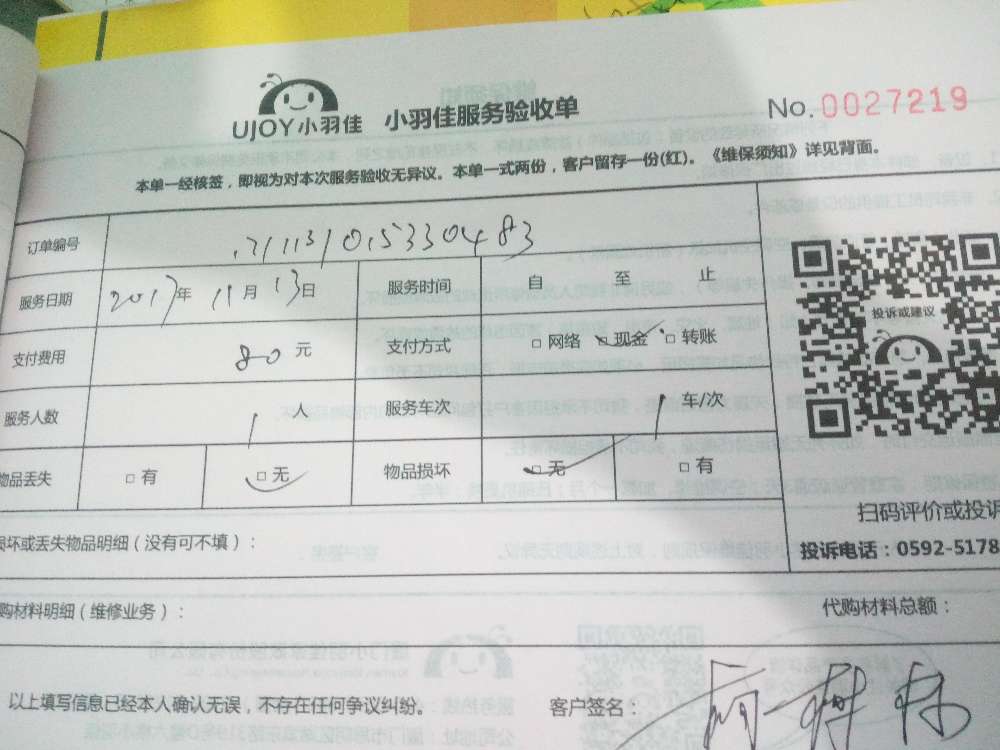 UJOY小羽佳 小羽佳服务验收单 No.0027219
本单一经核签，即视为对本次服务验收无异议。本单一式两份，客户留存一份(红)。《维保须知》详见背面。
订单编号
服务日期 2017年 11月 13日 服务时间 自 至 止
支付费用 80元 支付方式 □ 网络 □ 现金 □ 转账
服务人数 1 人 服务车次 1 车/次
物品丢失 □ 有 □ 无 物品损坏 □ 无 □ 有
投诉或建议
扫码评价或投诉
损坏或丢失物品明细（没有可不填）：
投诉电话：0592-5178
购材料明细（维修业务）：
代购材料总额：
以上填写信息已经本人确认无误，不存在任何争议纠纷。 客户签名：